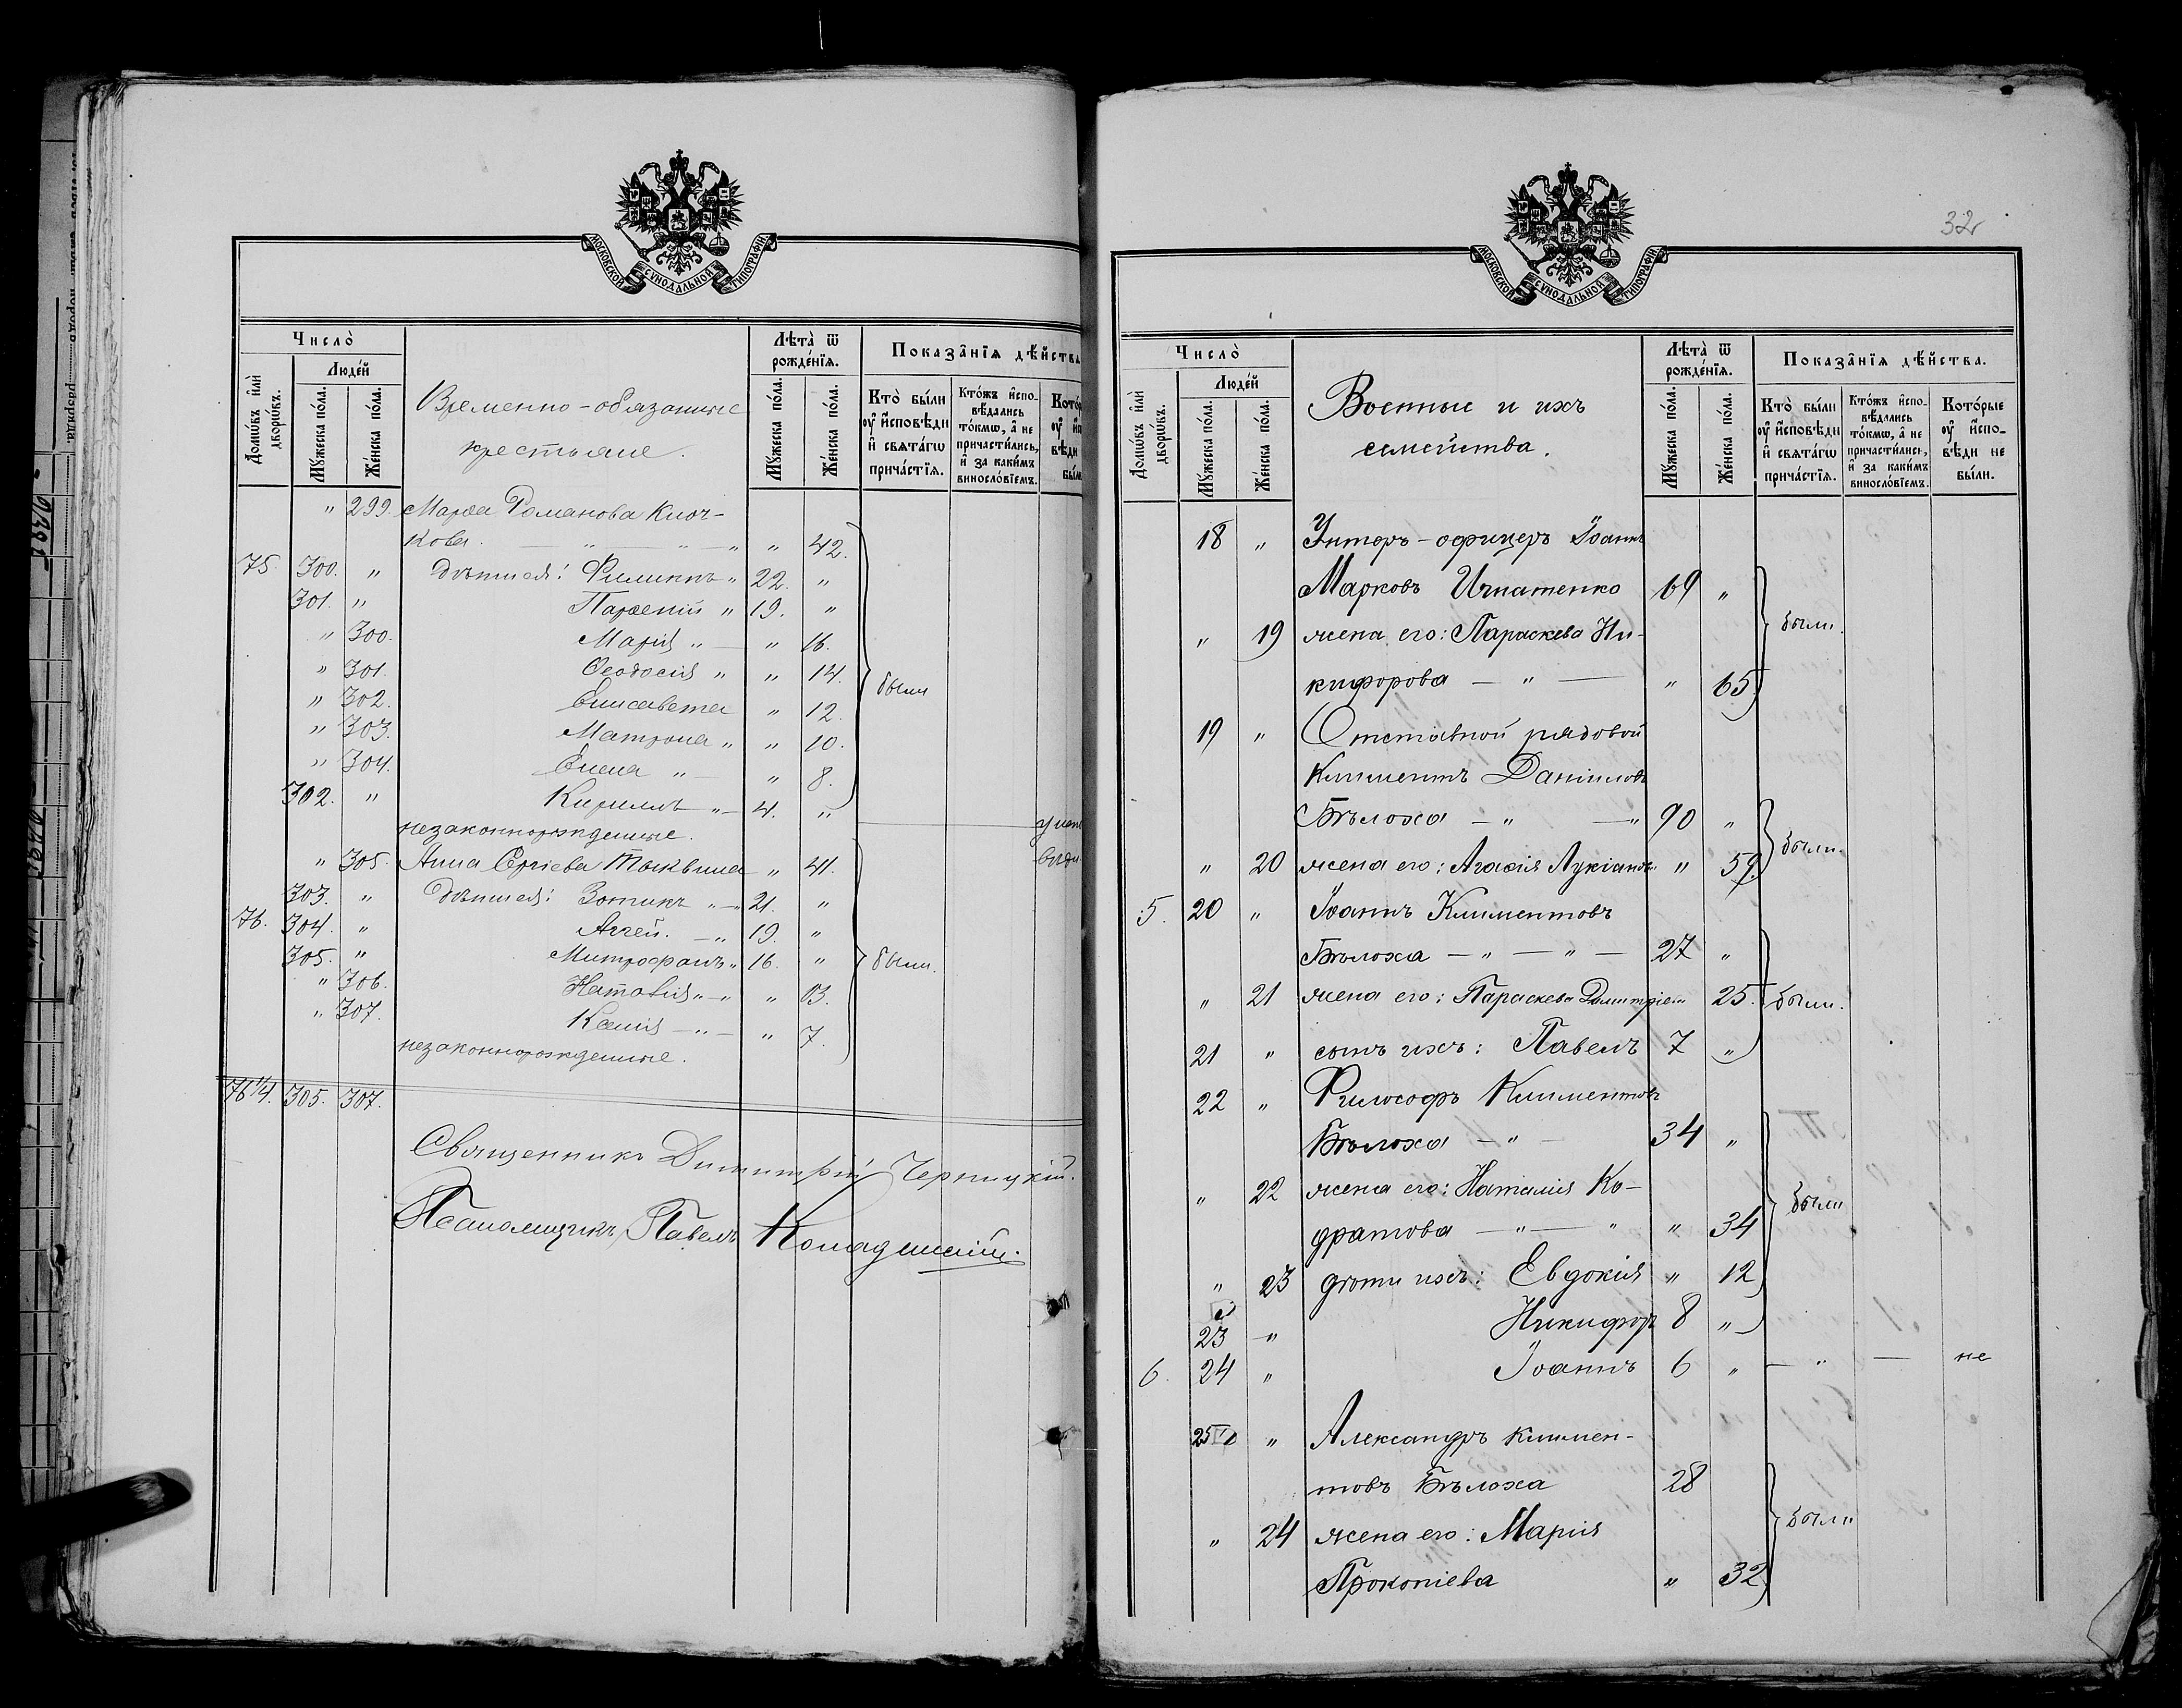 МОСКОВСКОЙ СУНОДАЛЬНОЙ ТИПОГРАФІИ
Число̀
Людéй
Домѡ́въ и҆лѝ дворѡ́въ.
Мꙋ́жеска по́ла.
Же́нска по́ла.
Временно-обязанные
крестьяне.
Лѣта̀ ѿ рожде́нїѧ.
Мꙋ́жеска по́ла.
Же́нска по́ла.
Показа̑нїѧ дѣ́йства
Кто̀ бы́ли ᲂу҆ и҆сповѣди и҆ свѧта́гѡ прича́стїѧ.
Кто́жъ и҆спо-вѣдались то́кмѡ, а҆ не причасти́лись, и҆ за каки́мъ винословїемъ.
" 299. Марѳа Романова Клоч-
кова. — " — " — " " 42.
75 300. " дѣти ея: Филиппъ " 22. "
301. " Парѳеній " 19. "
" 300. Марія " — " 16.
" 301. Ѳеодосія " " 14. были
" 302. Елисавета " 12.
" 303. Матрона " " 10.
" 304. Елена " — " 8.
302. " Кириллъ " — 4. "
незаконнорожденные.
" 305. Анна Сергіева " 41.
303. " дѣти ея: Зотикъ " — " 21. "
76. 304. " Аггей. — " 19. "
305. " Митрофанъ " 16. " были.
" 306. Наталія " — " " 13.
" 307. Ксенія — " — " 7.
незаконнорожденные.
76 1/4. 305. 307.
Священникъ Димитрій Черницкій.
Псаломщикъ Павелъ
32
МОСКОВСКОЙ СУНОДАЛЬНОЙ ТИПОГРАФІИ
Число̀
Людéй
Домѡ́въ и҆лѝ дворѡ́въ.
Мꙋ́жеска по́ла.
Же́нска по́ла.
Военные и ихъ
семейства.
Лѣта̀ ѿ рожде́нїѧ.
Мꙋ́жеска по́ла.
Же́нска по́ла.
Показа̑нїѧ дѣ́йства.
Кто̀ бы́ли ᲂу҆ и҆сповѣди и҆ свѧта́гѡ прича́стїѧ.
Кто́жъ и҆спо-вѣдались то́кмѡ, а҆ не причасти́лись, и҆ за каки́мъ винословїемъ.
Кото́рые ᲂу҆ и҆спо-вѣди не бы́ли.
18 " Унтеръ-офицеръ Іоаннъ
Марковъ Игнатенко 69 "
" 19 жена его: Параскева Ни- были.
кифорова — " — " 65
19 " Отставной рядовой
Климентъ Даніиловъ
Бѣлоха — " — " 90 "
" 20 жена его: Агаѳія Лукіанов. " 59. были.
5. 20 " Іоаннъ Климентовъ
Бѣлоха — " — " — 27 "
" 21 жена его: Параскева Димитріев. " 25. были.
21 " сынъ ихъ: Павелъ 7 "
22 " Философъ Климентовъ
Бѣлоха — " — 34 "
" 22 жена его: Наталія Ко- были
дратова — " — " " 34
" 23 дѣти ихъ: Евдокія " 12
23 " Никифоръ 8 "
6. 24 " Іоаннъ 6 " — " — не
25 " Александръ Климен-
товъ Бѣлоха 28
" 24 жена его: Марія были
Прокопіева " 32